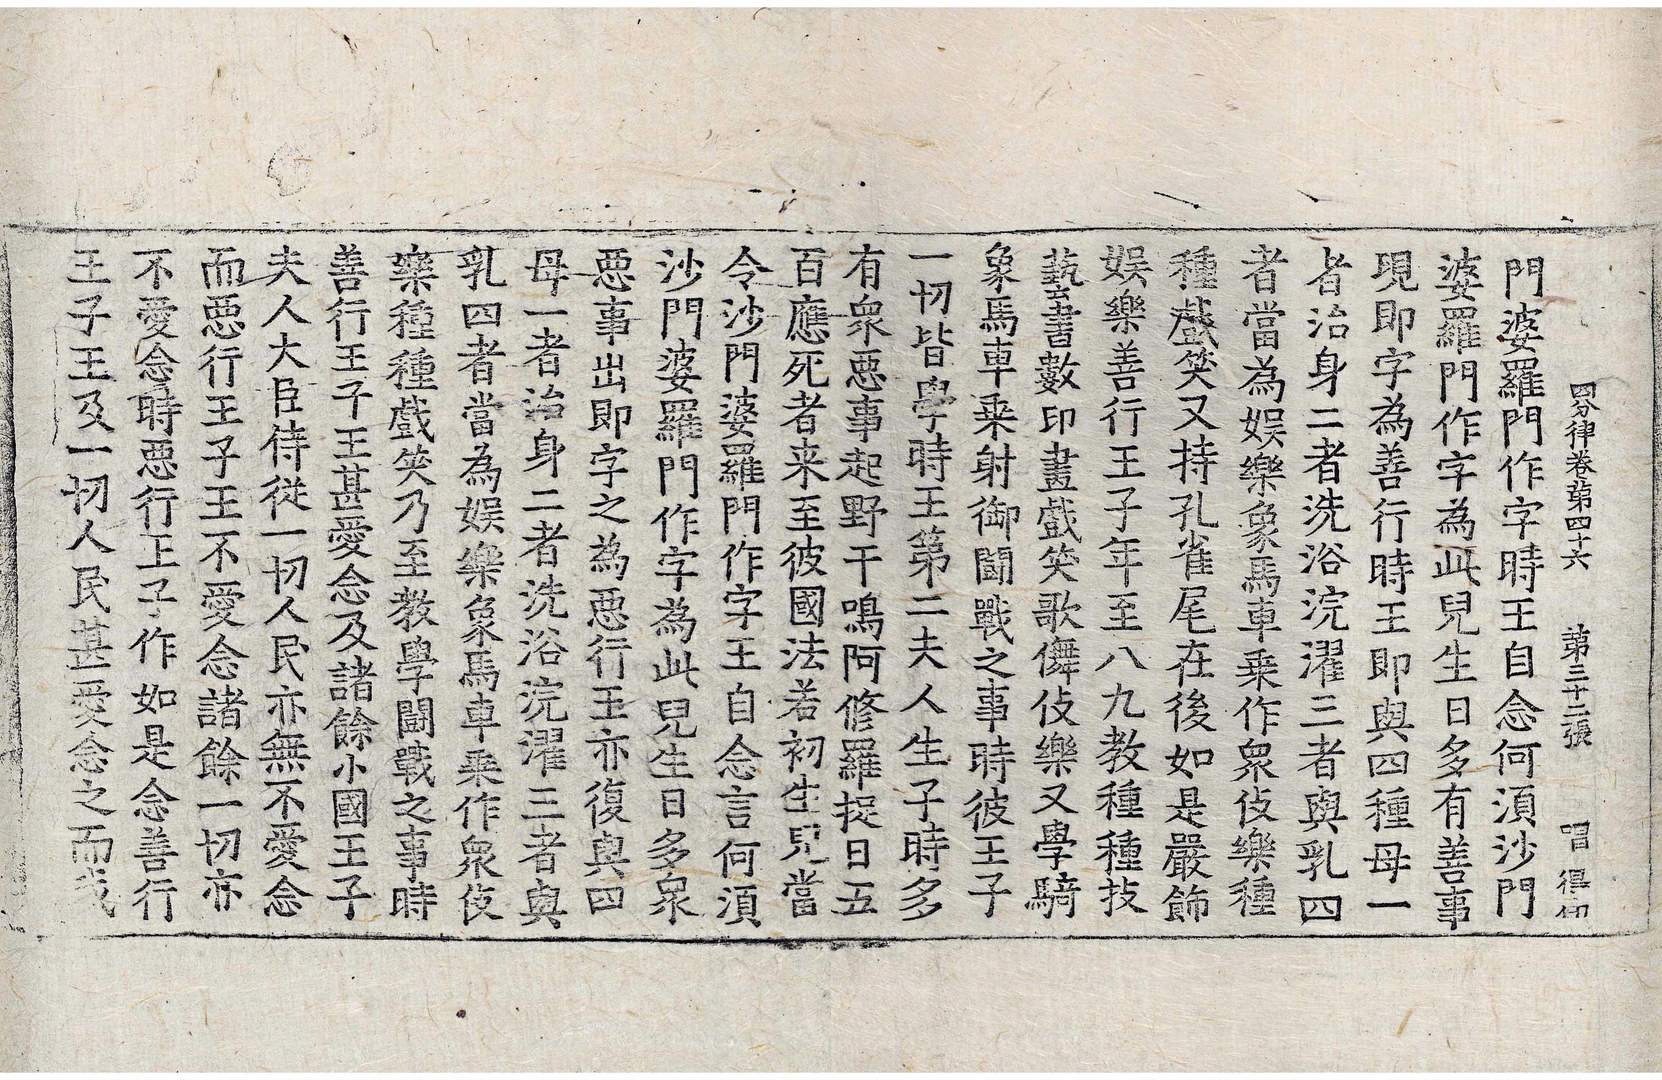 四分律卷第四十六 第三十二張 唱 得仞
門婆羅門作字時王自念何湏沙門
婆羅門作字為此兒生日多有善事
現即字為善行時王即與四種母一
者治身二者洗浴浣濯三者與乳四
者當為娛樂象馬車乗作衆伎樂種
種戲笑又持孔雀尾在後如是嚴飾
娛樂善行王子年至八九教種種技
藝書數印畫戲笑歌儛伎樂又學騎
象馬車乗射御鬪戰之事時彼王子
一切皆學時王第二夫人生子時多
有衆惡事起野干鳴阿修羅捉日五
百應死者来至彼國法若初生兒當
令沙門婆羅門作字王自念言何湏
沙門婆羅門作字為此兒生日多衆
惡事出即字之為惡行王亦復與四
母一者治身二者洗浴浣濯三者與
乳四者當為娛樂象馬車乗作衆伎
樂種種戲笑乃至教學鬪戰之事時
善行王子王甚愛念及諸餘小國王子
夫人大臣侍從一切人民亦無不愛念
而惡行王子王不愛念諸餘一切亦
不愛念時惡行王子作如是念善行
王子王及一切人民甚愛念之而我